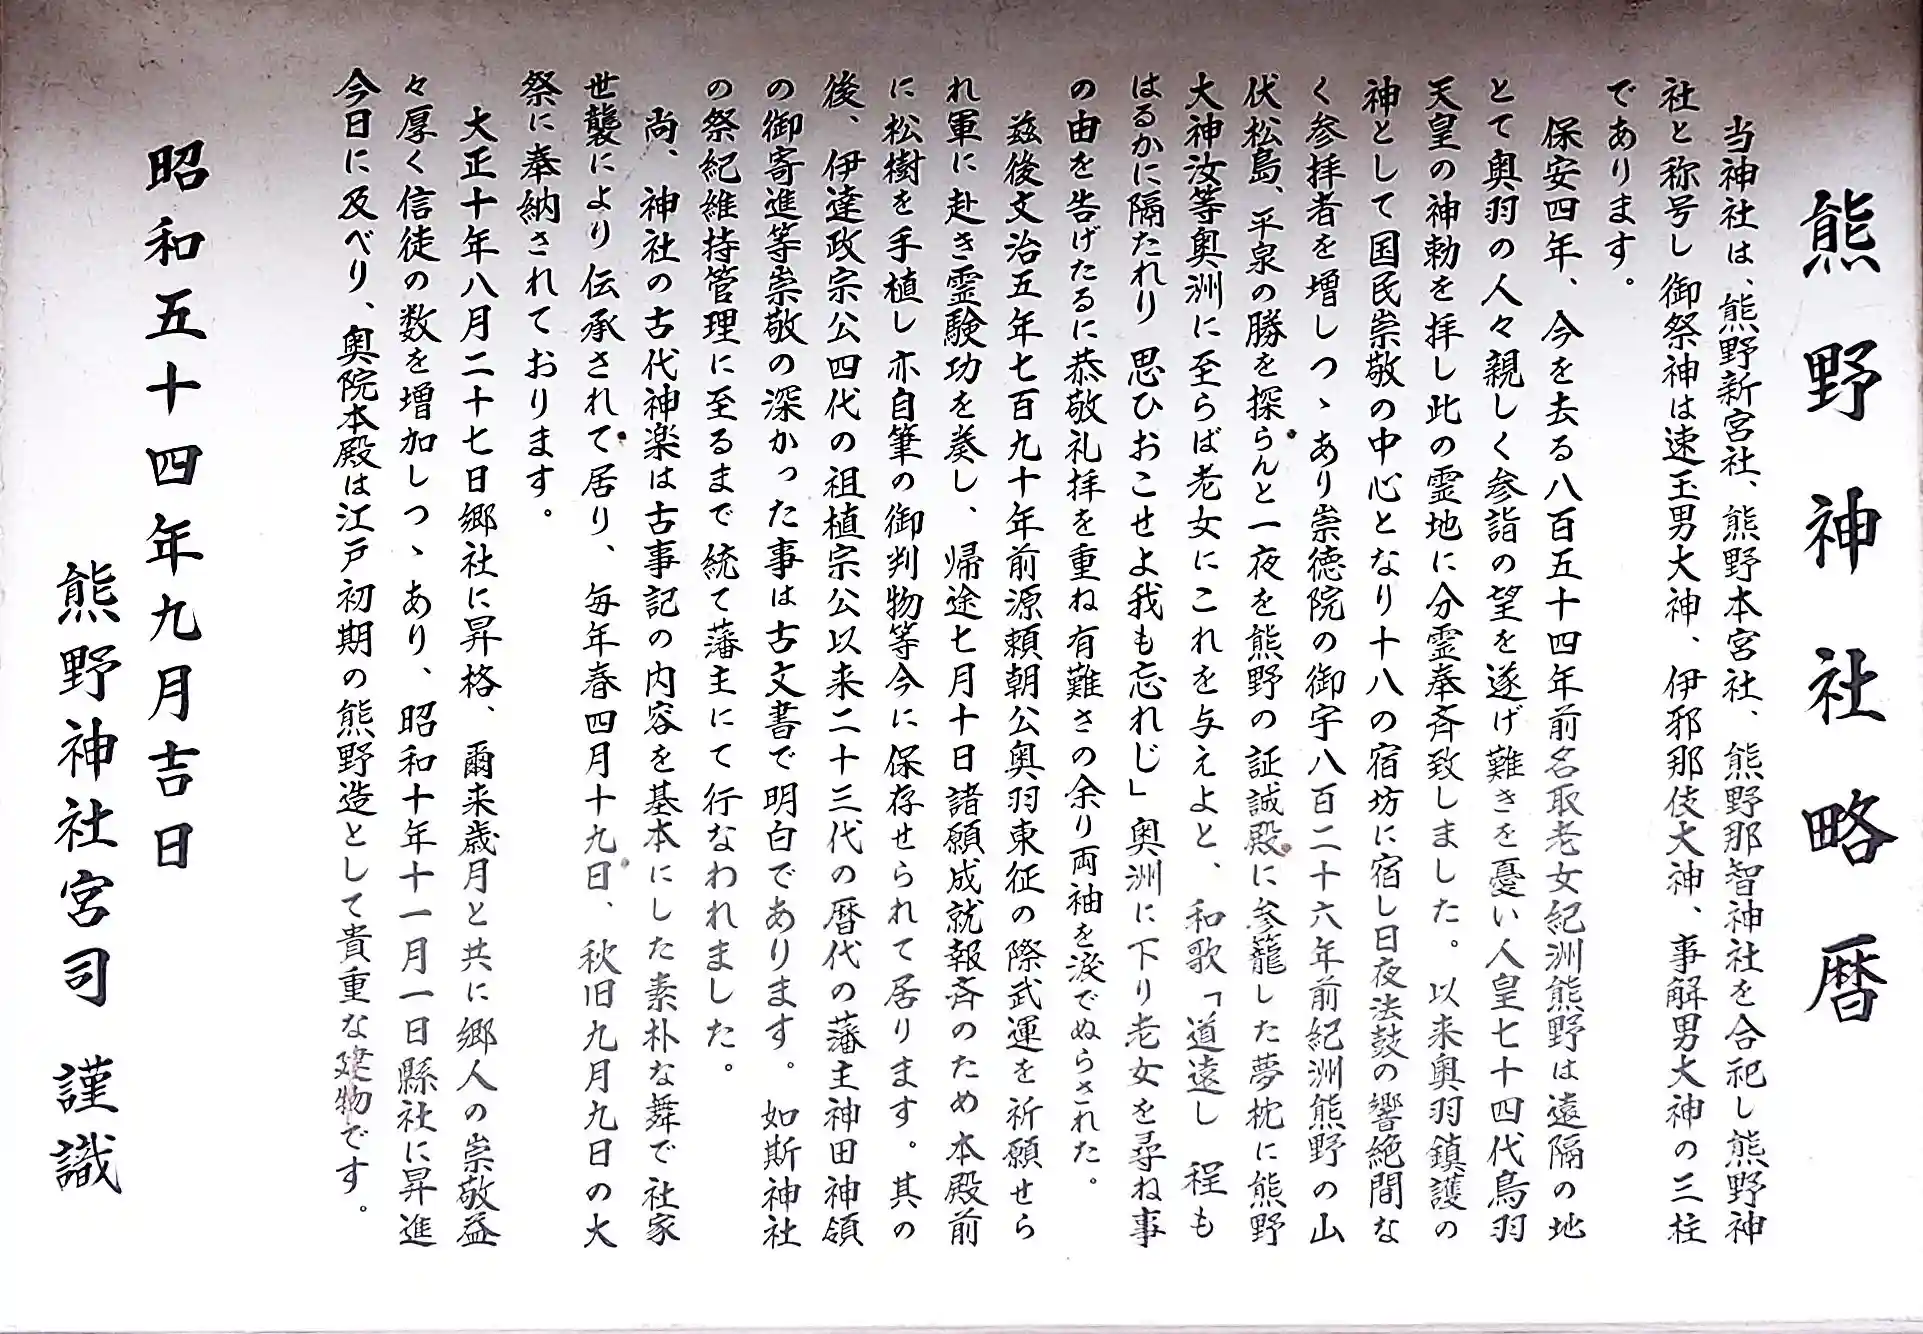 熊野神社略暦
当神社は、熊野新宮社、熊野本宮社、熊野那智神社を合祀し熊野神
社と称号し御祭神は速玉男大神、伊邪那伎大神、事解男大神の三柱
であります。
保安四年、今を去る八百五十四年前名取老女紀洲熊野は遠隔の地
とて奥羽の人々親しく参詣の望を遂げ難きを憂い人皇七十四代鳥羽
天皇の神勅を拝し此の霊地に分霊奉斉致しました。以来奥羽鎮護の
神として国民崇敬の中心となり十八の宿坊に宿し日夜法鼓の響絶間な
く参拝者を増しつゝあり崇徳院の御宇八百二十六年前紀洲熊野の山
伏松島、平泉の勝を探らんと一夜を熊野の証誠殿に参籠した夢枕に熊野
大神汝等奥洲に至らば老女にこれを与えよと、和歌「道遠し 程も
はるかに隔たれり 思ひおこせよ我も忘れじ」奥洲に下り老女を尋ね事
の由を告げたるに恭敬礼拝を重ね有難さの余り両袖を涙でぬらされた。
兹後文治五年七百九十年前源頼朝公奥羽東征の際武運を祈願せら
れ軍に赴き霊験功を奏し、帰途七月十日諸願成就報斉のため本殿前
に松樹を手植し亦自筆の御判物等今に保存せられて居ります。其の
後、伊達政宗公四代の祖植宗公以来二十三代の暦代の藩主神田神領
の御寄進等崇敬の深かった事は古文書で明白であります。如斯神社
の祭紀維持管理に至るまで統て藩主にて行なわれました。
尚、神社の古代神楽は古事記の内容を基本にした素朴な舞で社家
世襲により伝承されて居り、毎年春四月十九日、秋旧九月九日の大
祭に奉納されております。
大正十年八月二十七日郷社に昇格、爾来歳月と共に郷人の崇敬益
々厚く信徒の数を増加しつゝあり、昭和十年十一月一日縣社に昇進
今日に及べり、奥院本殿は江戸初期の熊野造として貴重な建物です。
昭和五十四年九月吉日
熊野神社宮司 謹識